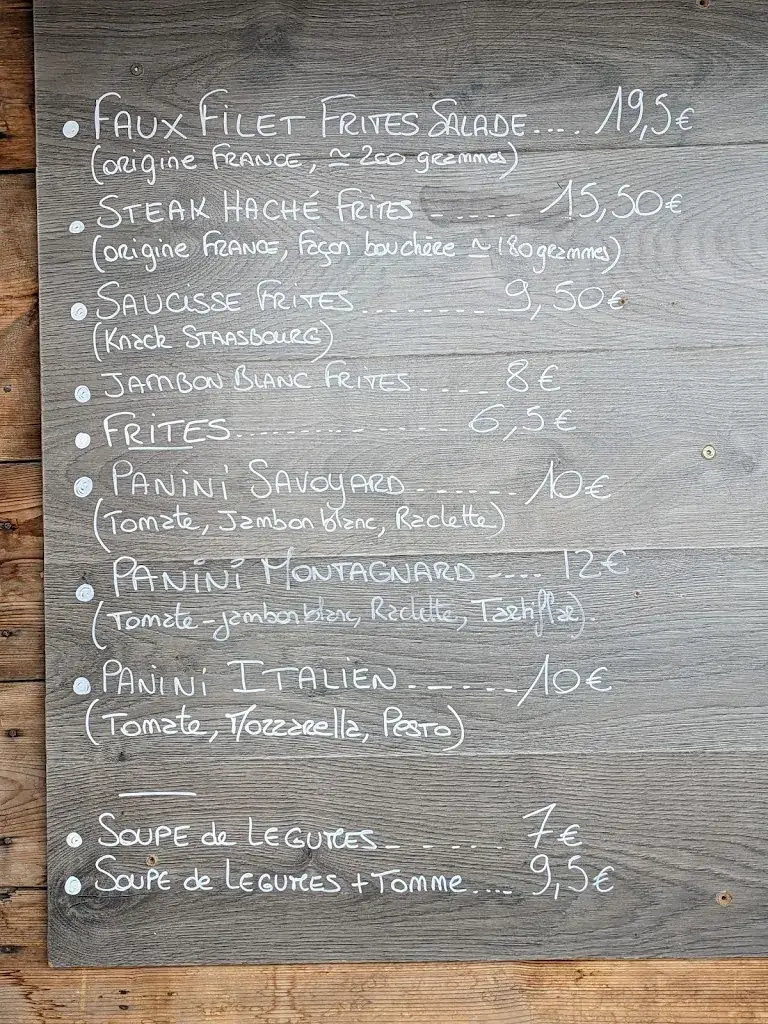 • FAUX FILET FRITES SALADE.... 19,5€
(origine FRANCE, ≃ 200 grammes)
• STEAK HACHÉ FRITES ...... 15,50€
(origine FRANCE, Façon bouchère ≃ 180 grammes)
• SAUCISSE FRITES......... 9,50€
(Knack STRASBOURG)
• JAMBON BLANC FRITES..... 8€
• FRITES................ 6,5€
• PANINI SAVOYARD....... 10€
(Tomate, Jambon blanc, Raclette)
• PANINI MONTAGNARD .... 12€
(Tomate-jambon blanc, Raclette, Tartiflar).
• PANINI ITALIEN....... 10€
(Tomate, Mozzarella, PESTO)
• SOUPE de LEGUMES....... 7€
• SOUPE de LEGUMES + Tomme.... 9,5€